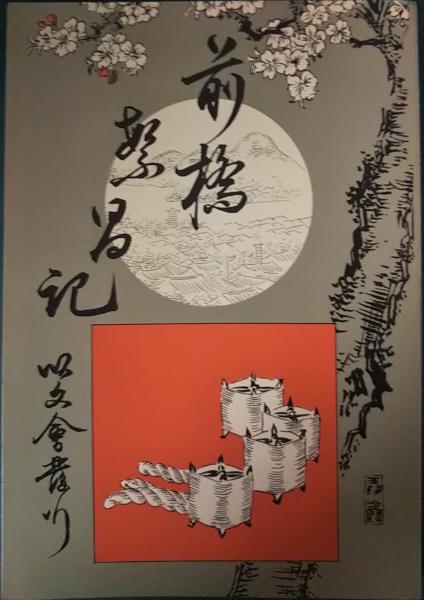 前橋
繁昌記
以文會發行